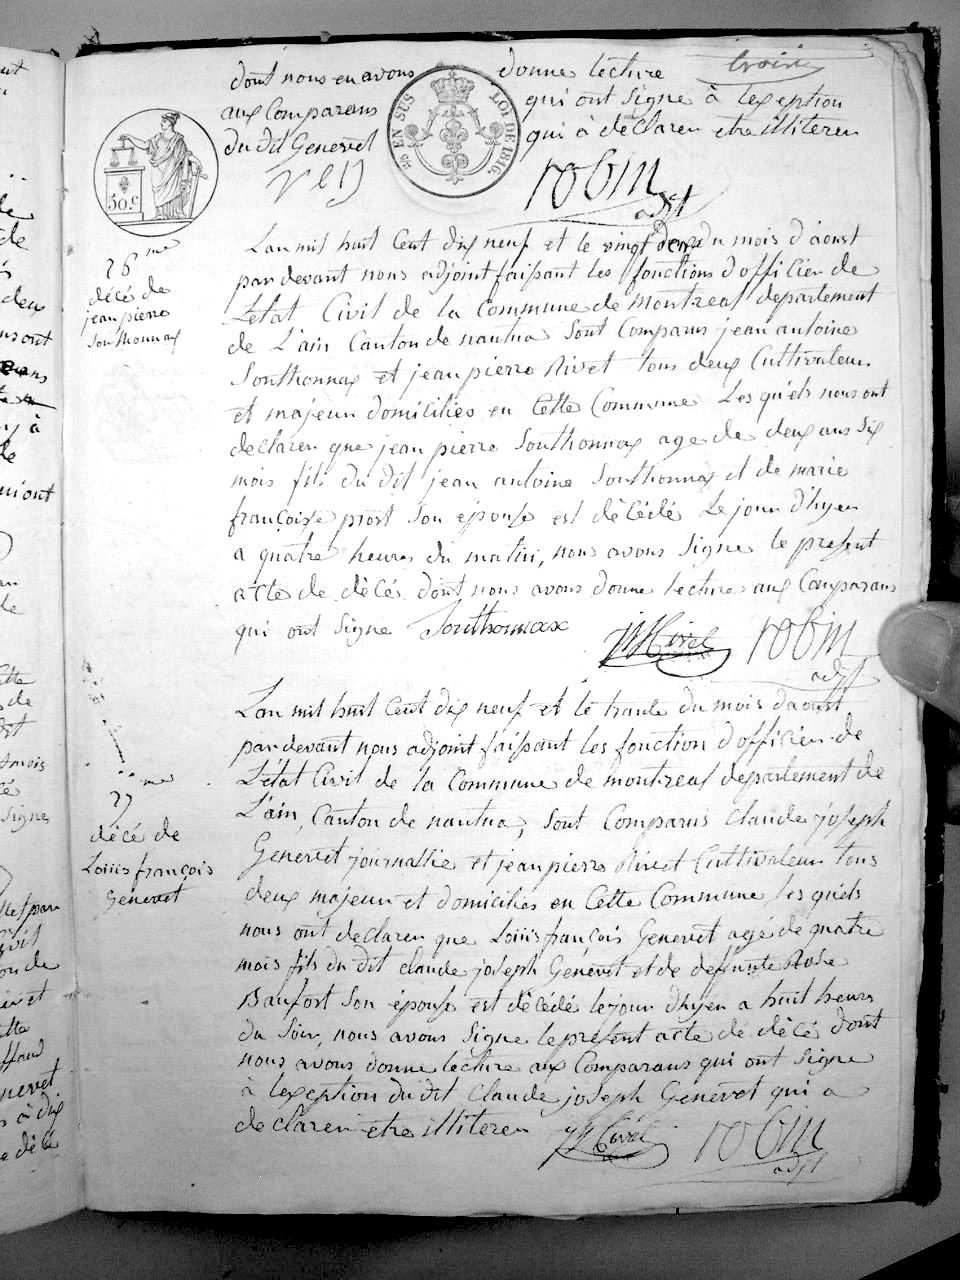 troisi
dont nous en avons donne lecture
aux Comparans qui ont signe à lexeption
du dit Genevet qui à declaren etre illiteren
EN SUS LOI DE 1816.
50.c
robin
adjt
26me
décé de
jean pierre
Southonnax
Lan mil huit Cent dix neuf et le vingt deux du mois d'aoust
par devant nous adjoint faisant les fonctions d'officier de
L'état Civil de la Commune de montreal departement
de L'ain Canton de nantua Sont Comparus jean antoine
Southonnax et jean pierre Rivet tous deux Cultivateur
et majeur domiciliés en Cette Commune Les quels nous ont
declaren que jean pierre Southonnax age de deux ans six
mois fils du dit jean antoine Southonnax et de marie
françoise prost Son épouse est décédé Le jour d'hyer
a quatre heures du matin, nous avons signe le present
acte de décé dont nous avons donne lecture aux Comparans
qui ont signe Southonnax
robin
adjt
27me
décé de
Louis françois
Genevet
Lan mil huit cent dix neuf et le trante du mois daoust
par devant nous adjoint faisant les fonction d'officier de
L'état Civil de la Commune de montreal departement de
L'ain, Canton de nantua, Sont Comparus Claude joseph
Genevet journallie et jean pierre Rivet Cultivateur tous
deux majeur et domiciliés en Cette Commune les quels
nous ont declaren que Louis françois Genevet agé de quatre
mois fils du dit claude joseph Genevet et de deffunte Rose
Baufort Son épouse est décédé le jour d'hyer a huit heures
du Soir, nous avons Signe le présent acte de décé dont
nous avons donne lecture aux Comparans qui ont signe
à lexeption du dit Claude joseph Genevet qui a
declaren etre illiteren
robin
adjt